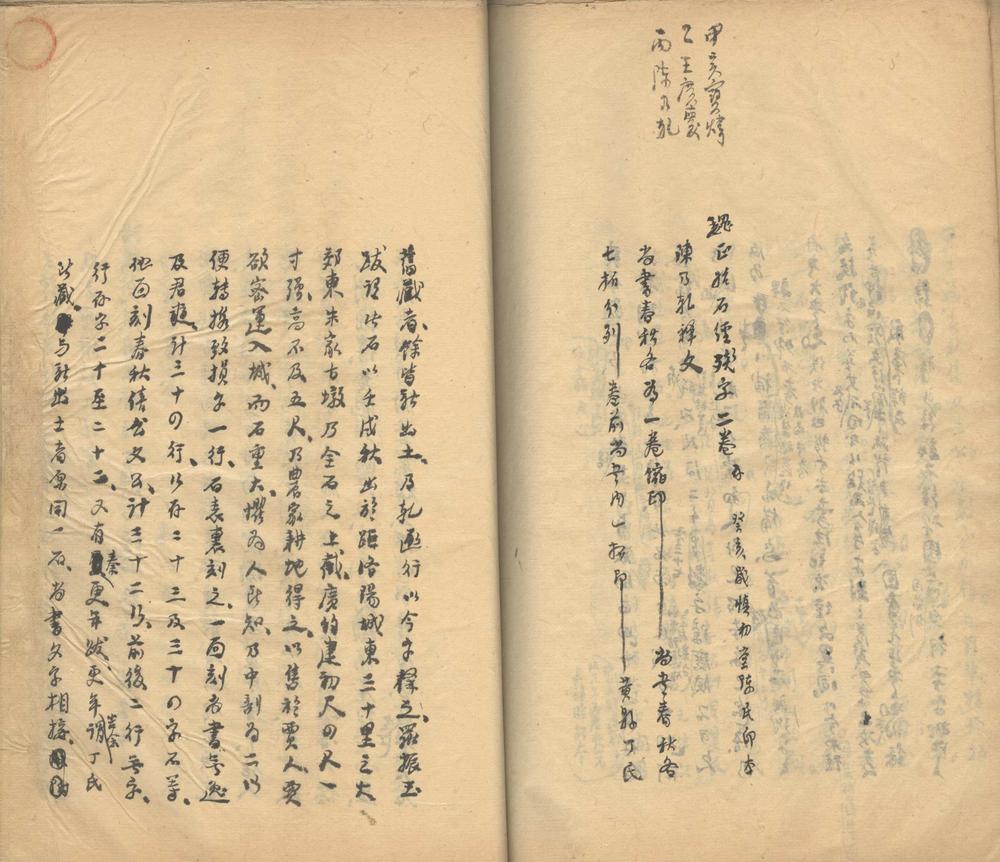 甲吴寶煒
乙王廣慶
丙陳乃乾
魏正始石經殘字二卷 癸亥歲慎初堂陳氏印本
陳乃乾釋文
尚書春秋各為一卷縮印 尚書春秋各
七拓分列 卷前尚書內一拓印 黃縣丁氏
舊藏者、餘皆新出土、乃乾逐行以今字釋之、羅振玉
跋謂此石以壬戌秋出於距洛陽城東三十里之大
郊東朱家古墩乃全石之上截、廣約建初尺四尺一
寸強、高不及五尺、乃農家耕地得之、以售於賈人、賈
欲密運入城、而石重大、懼為人所知、乃中剖為二以
便轉移、致損字一行、石表裏刻之、一面刻尚書無逸
及君奭、計三十四行、行存二十三及三十四字不等、
他面刻春秋僖公文公、計三十二行、前後二行無字、
行存字二十至二十二、又有秦更年跋、更年謂丁氏
所藏、與新出土者原同一石、尚書文字相接、